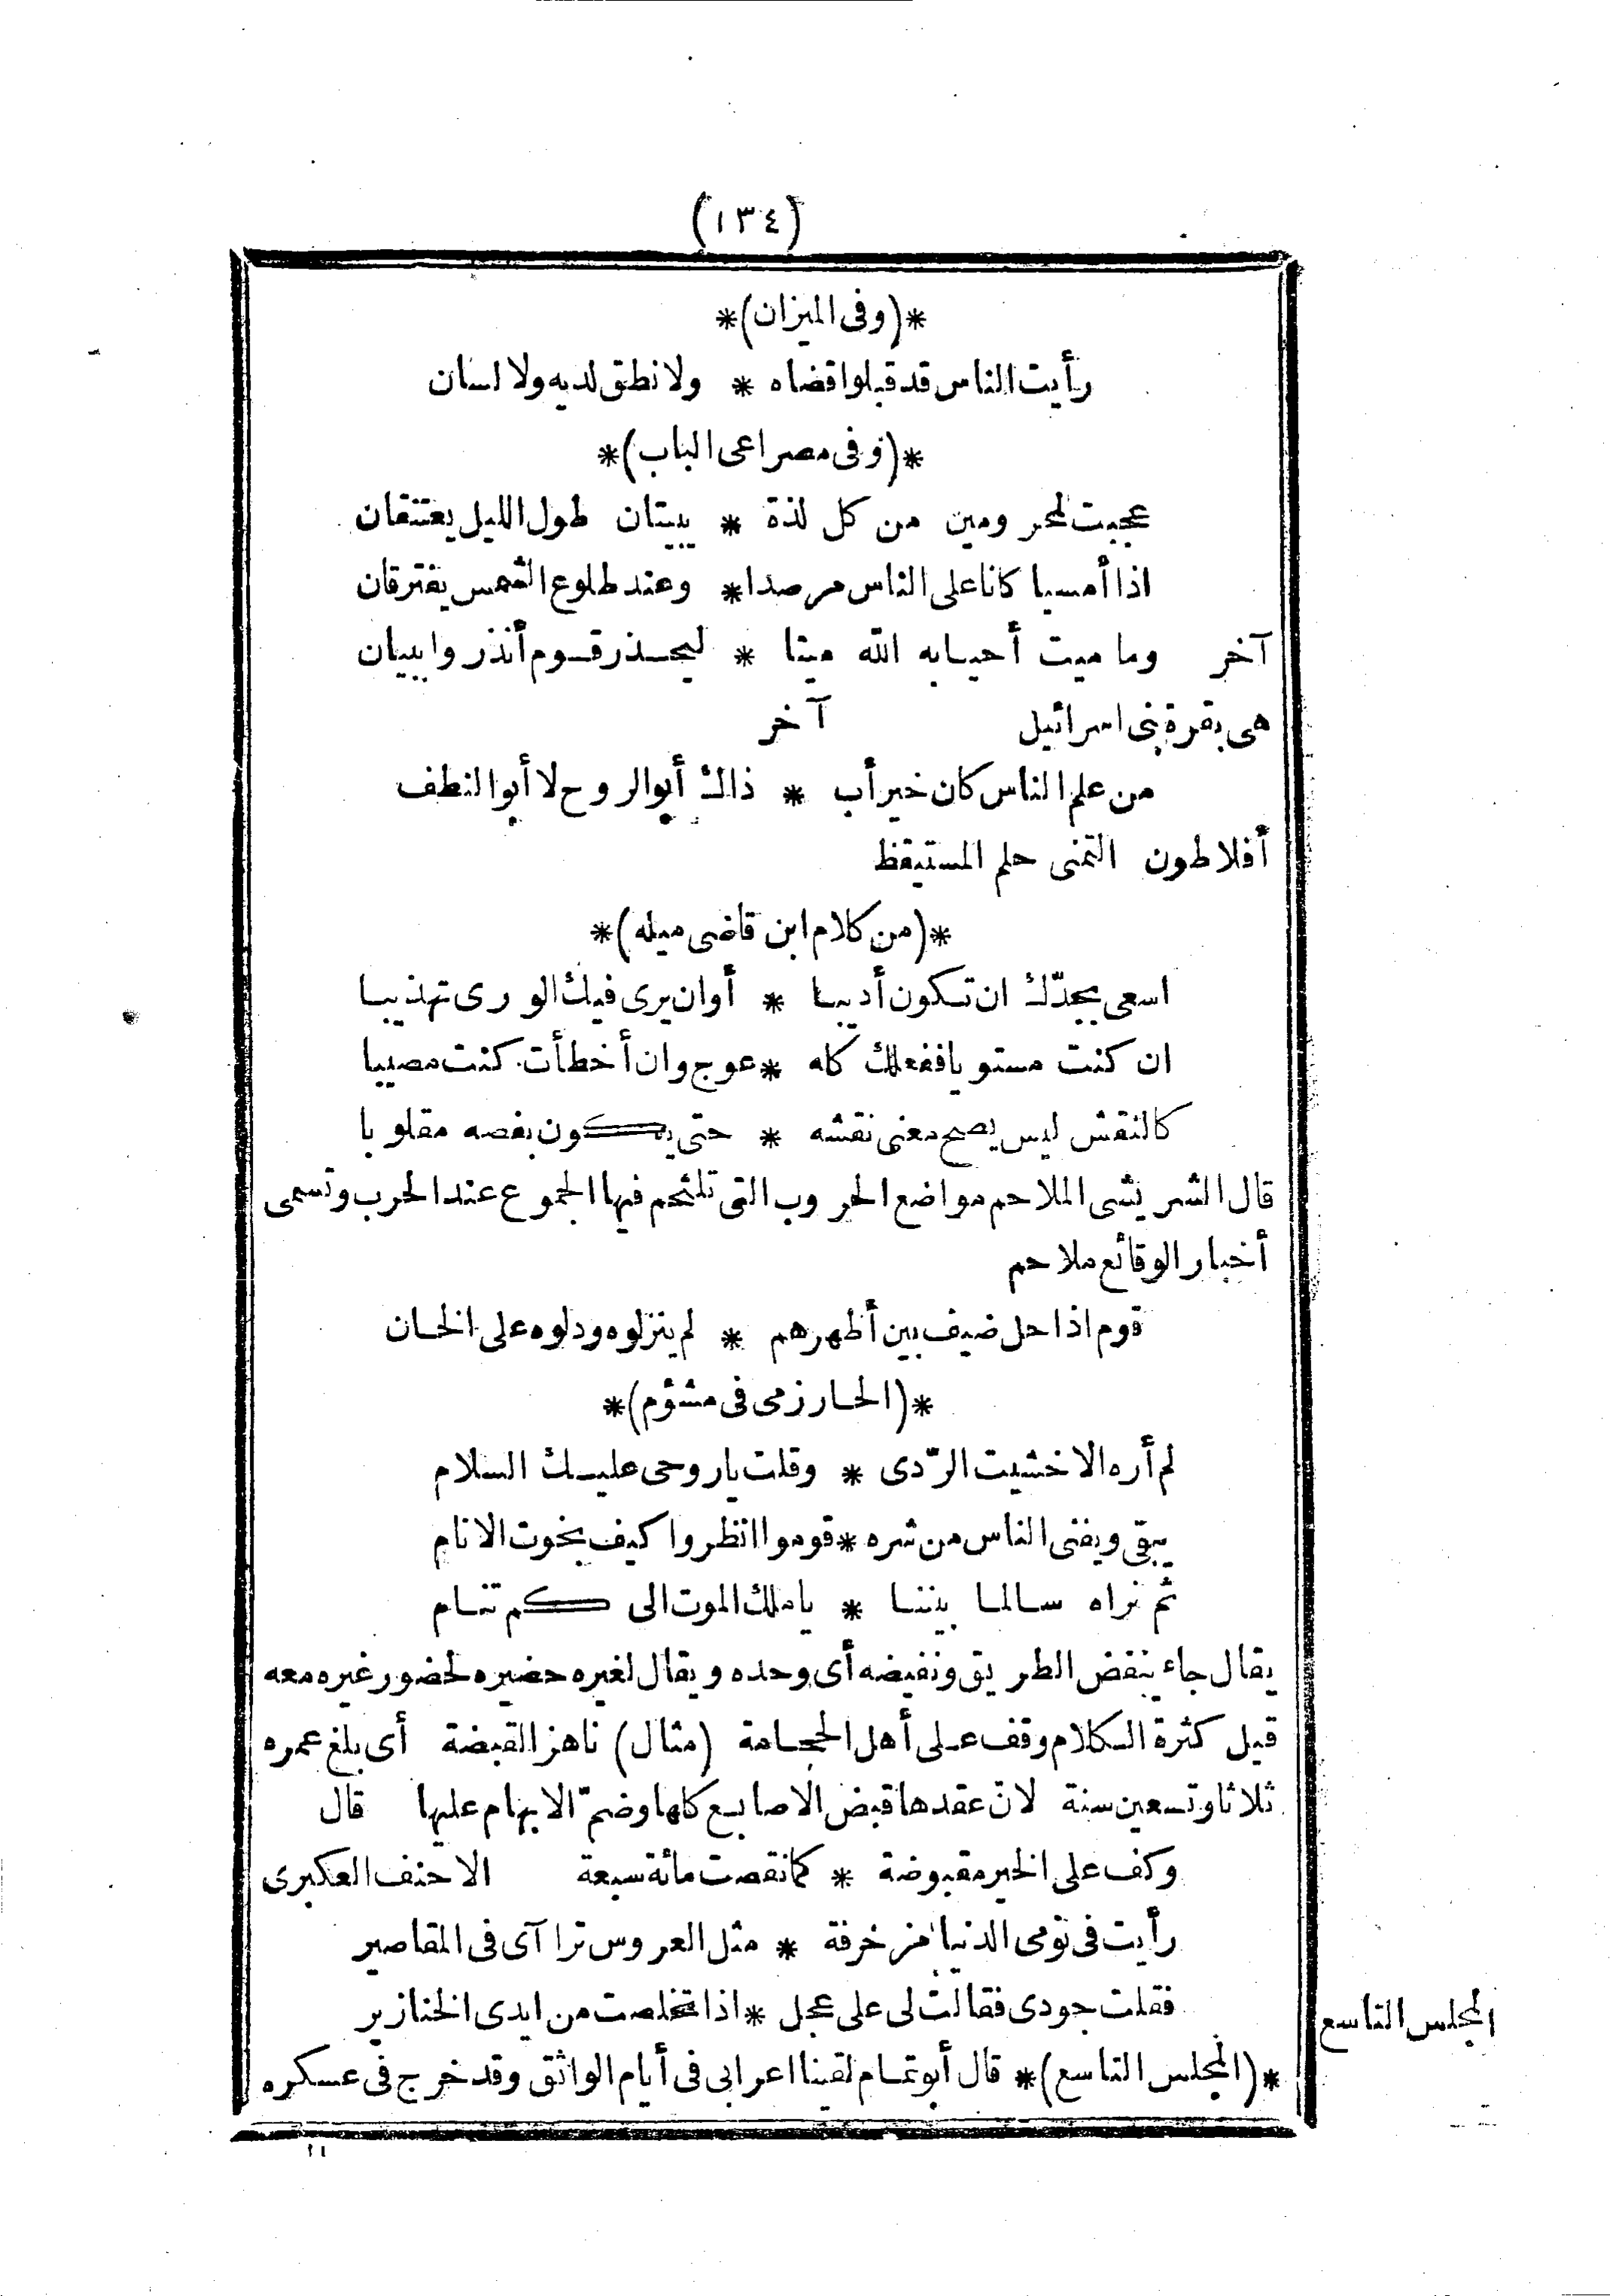 (١٣٤)
*(وفى الميزان)*
رأيت الناس قد قبلوا قضاه * ولا نطق لديه ولا لسان
*(وفى مصراعى الباب)*
عجبت لمحرومين من كل لذة * يبيتان طول الليل يعتنقان
اذا أمسيا كانا على الناس مرصدا * وعند طلوع الشمس يفترقان
آخر وما ميت أحيا به الله ميتا * ليحذر قوم أنذروا ببيان
هى بقرة بنى اسرائيل آخر
من علم الناس كان خير أب * ذاك أبو الروح لا أبو النطف
أفلاطون التمنى حلم المستيقظ
*(من كلام ابن قاضى ميله)*
اسعى بجدّك ان تكون أديبا * أوان يرى فيك الورى تهذيبا
ان كنت مستويا ففعلك كله * عوج وان أخطأت كنت مصيبا
كالنقش ليس يصح معنى نقشه * حتى يكون بفصه مقلوبا
قال الشريشى الملاحم مواضع الحروب التى تلتحم فيها الجموع عند الحرب وتسمى
أخبار الوقائع ملاحم
قوم اذا حل ضيف بين أظهرهم * لم ينزلوه ودلوه على الخان
*(الحارزمى فى مشؤم)*
لم أره الا خشيت الرّدى * وقلت يا روحى عليك السلام
يبقى ويفنى الناس من شره * قوموا انظروا كيف بخوت الانام
ثم نراه سالما بيننا * يا ملك الموت الى كم تنام
يقال جاء ينفض الطريق ونفيضه أى وحده ويقال لغيره حضيره لحضور غيره معه
قيل كثرة الكلام وقف على أهل الحجامة (مثال) ناهز القبضة أى بلغ عمره
ثلاثا وتسعين سنة لانّ عقدها قبض الاصابع كلها وضمّ الابهام عليها قال
وكف على الخير مقبوضة * كما نقصت مائة سبعة الاحنف العكبرى
رأيت فى نومى الدنيا مزخرفة * مثل العروس تراآى فى المقاصير
فقلت جودى فقالت لى على عجل * اذا تخلصت من ايدى الخنازير
المجلس التاسع
*(المجلس التاسع)* قال أبو تمام لقينا اعرابى فى أيام الواثق وقد خرج فى عسكره